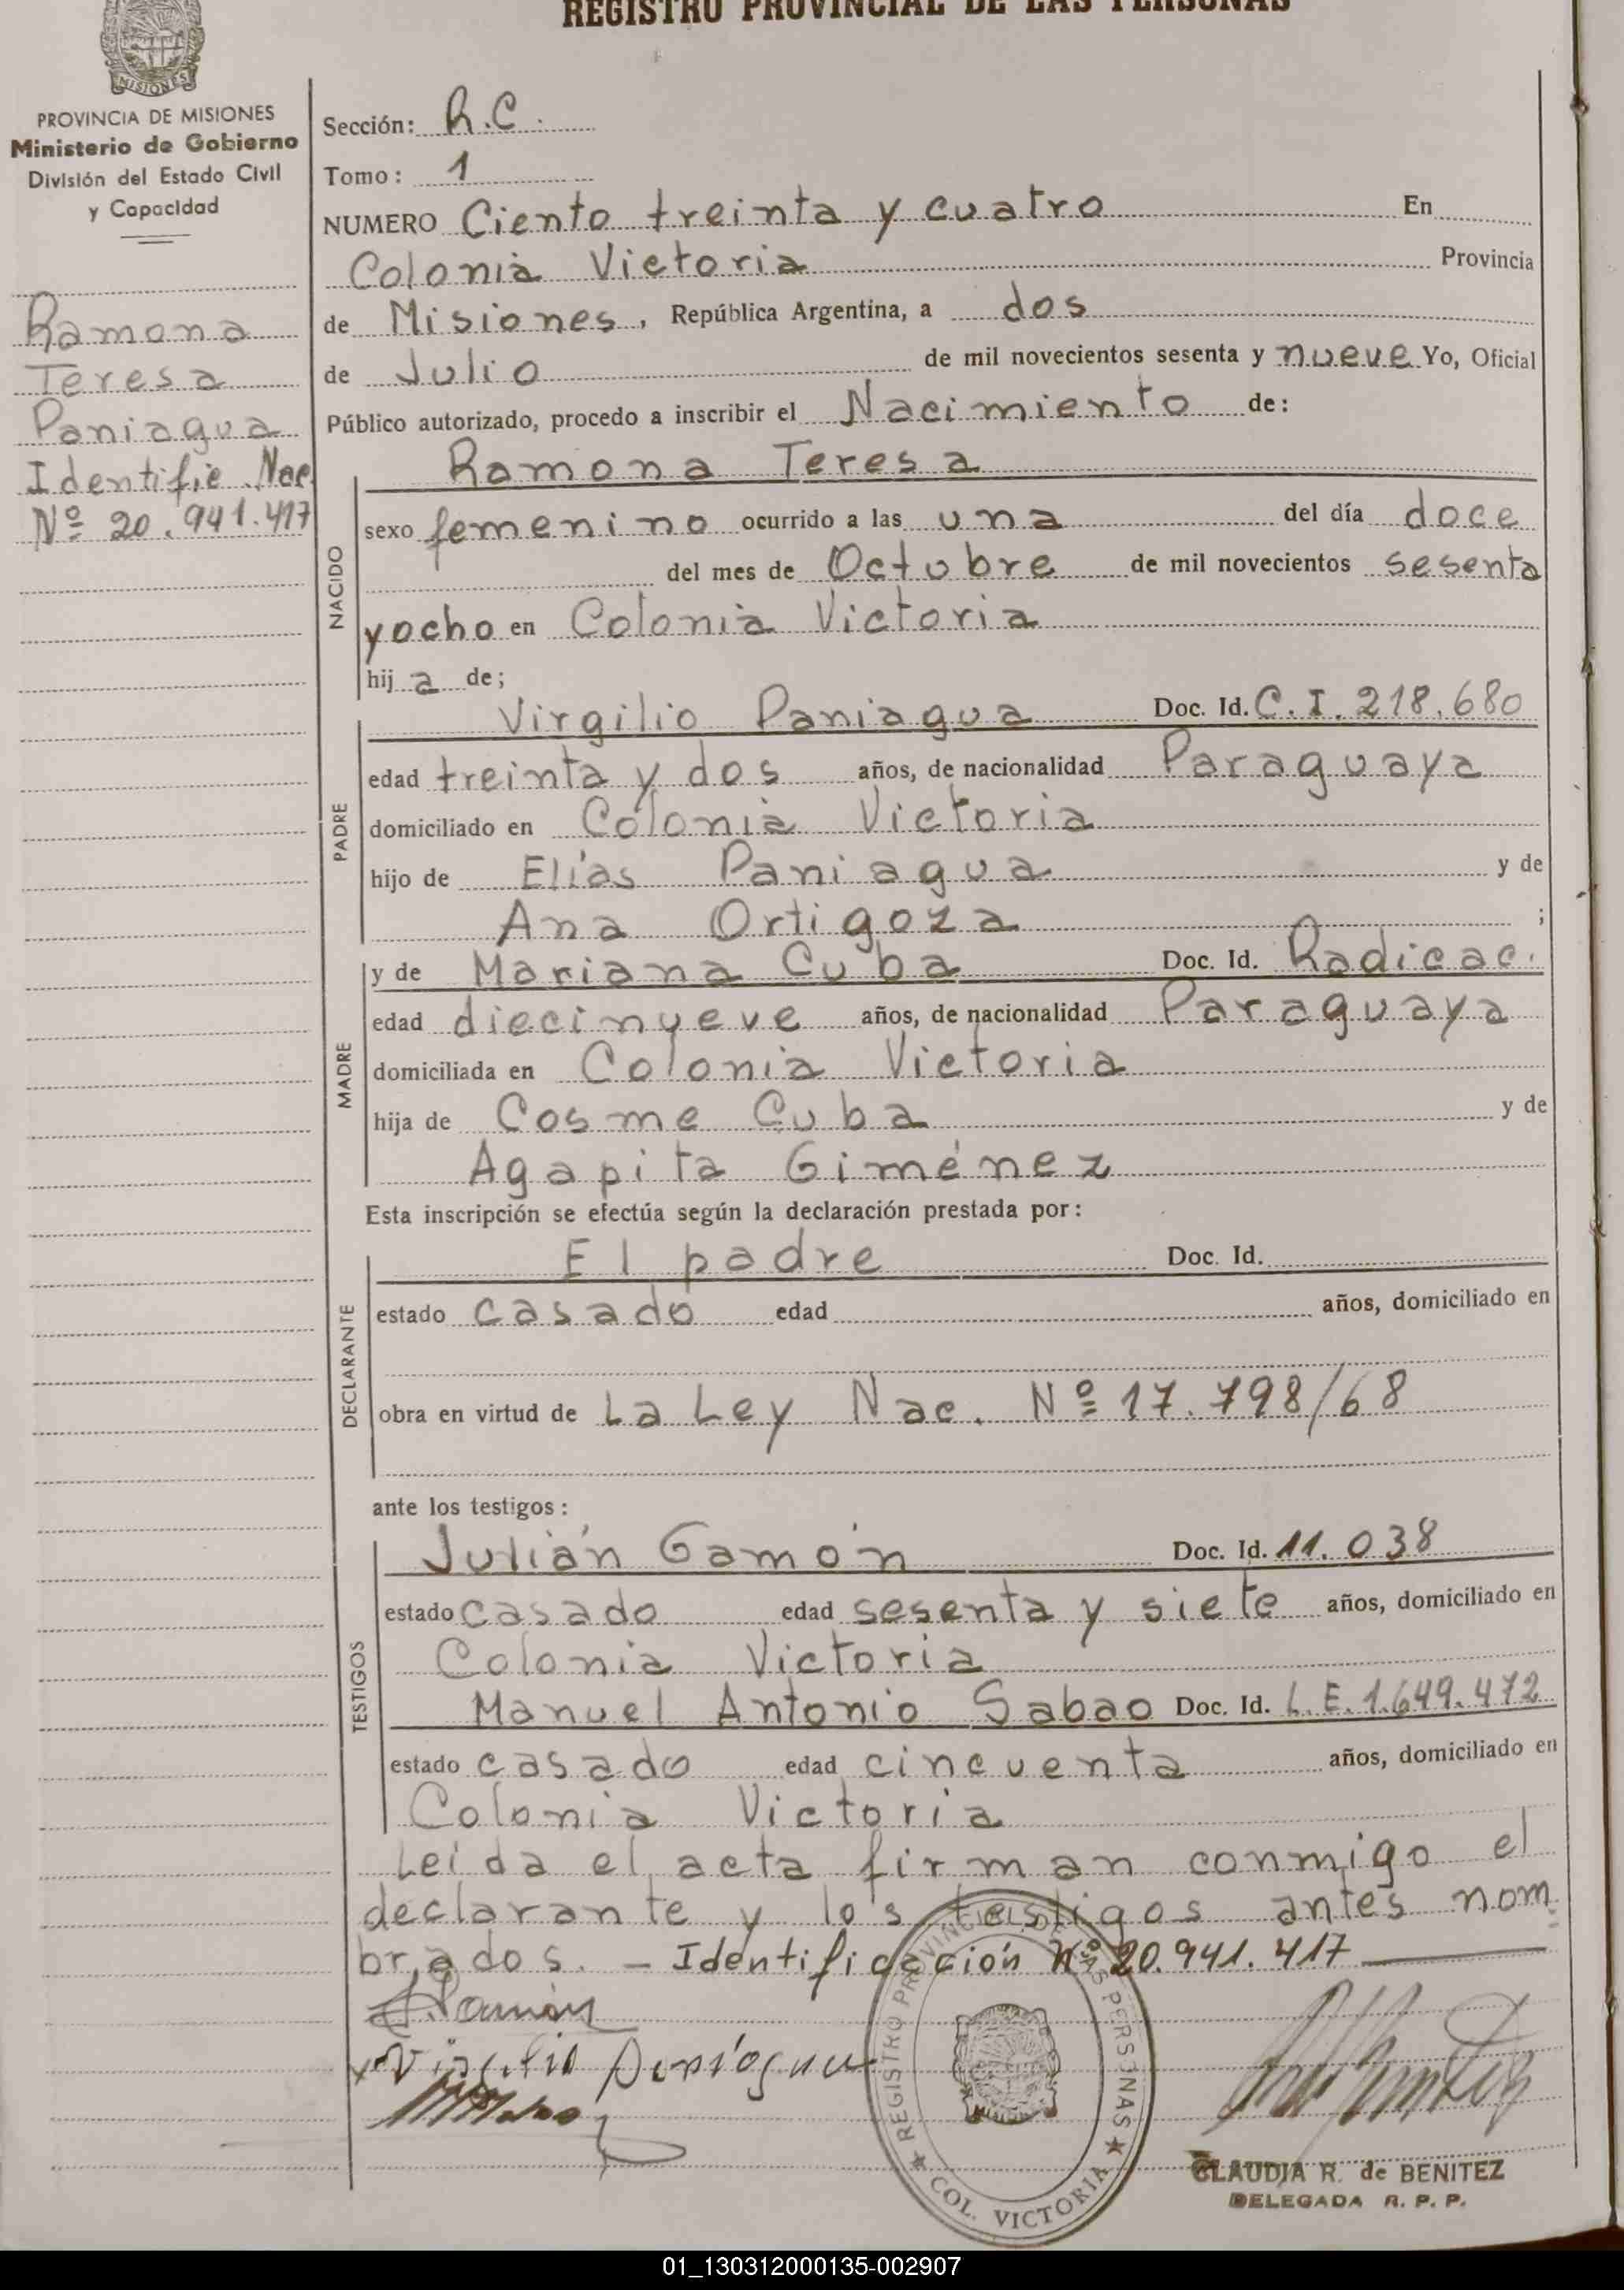 REGISTRO PROVINCIAL DE LAS PERSONAS
MISIONES
PROVINCIA DE MISIONES
Ministerio de Gobierno
División del Estado Civil
y Capacidad
Ramona
Teresa
Paniagua
Identific. Nac.
Nº 20.941.417
Sección: R.C.
Tomo: 1
NUMERO Ciento treinta y cuatro En
Colonia Victoria Provincia
de Misiones, República Argentina, a dos
de Julio de mil novecientos sesenta y nueve Yo, Oficial
Público autorizado, procedo a inscribir el Nacimiento de:
NACIDO
Ramona Teresa
sexo femenino ocurrido a las una del día doce
del mes de Octubre de mil novecientos sesenta
y ocho en Colonia Victoria
hij a de;
PADRE
Virgilio Paniagua Doc. Id. C.I. 218.680
edad treinta y dos años, de nacionalidad Paraguaya
domiciliado en Colonia Victoria
hijo de Elías Paniagua y de
Ana Ortigoza ;
MADRE
y de Mariana Cuba Doc. Id. Radicac.
edad diecinueve años, de nacionalidad Paraguaya
domiciliada en Colonia Victoria
hija de Cosme Cuba y de
Agapita Giménez
Esta inscripción se efectúa según la declaración prestada por:
DECLARANTE
El padre Doc. Id.
estado casado edad años, domiciliado en
obra en virtud de La Ley Nac. Nº 17.798/68
ante los testigos:
TESTIGOS
Julián Gamón Doc. Id. 11.038
estado casado edad sesenta y siete años, domiciliado en
Colonia Victoria
Manuel Antonio Sabao Doc. Id. L.E. 1.649.472
estado casado edad cincuenta años, domiciliado en
Colonia Victoria
Leída el acta firman conmigo el
declarante y los testigos antes nom
brados. - Identificación Nº 20.941.417
Virgilio Paniagua
REGISTRO PROVINCIAL DE LAS PERSONAS
COL. VICTORIA
CLAUDIA R. de BENITEZ
DELEGADA R. P. P.
01_130312000135-002907